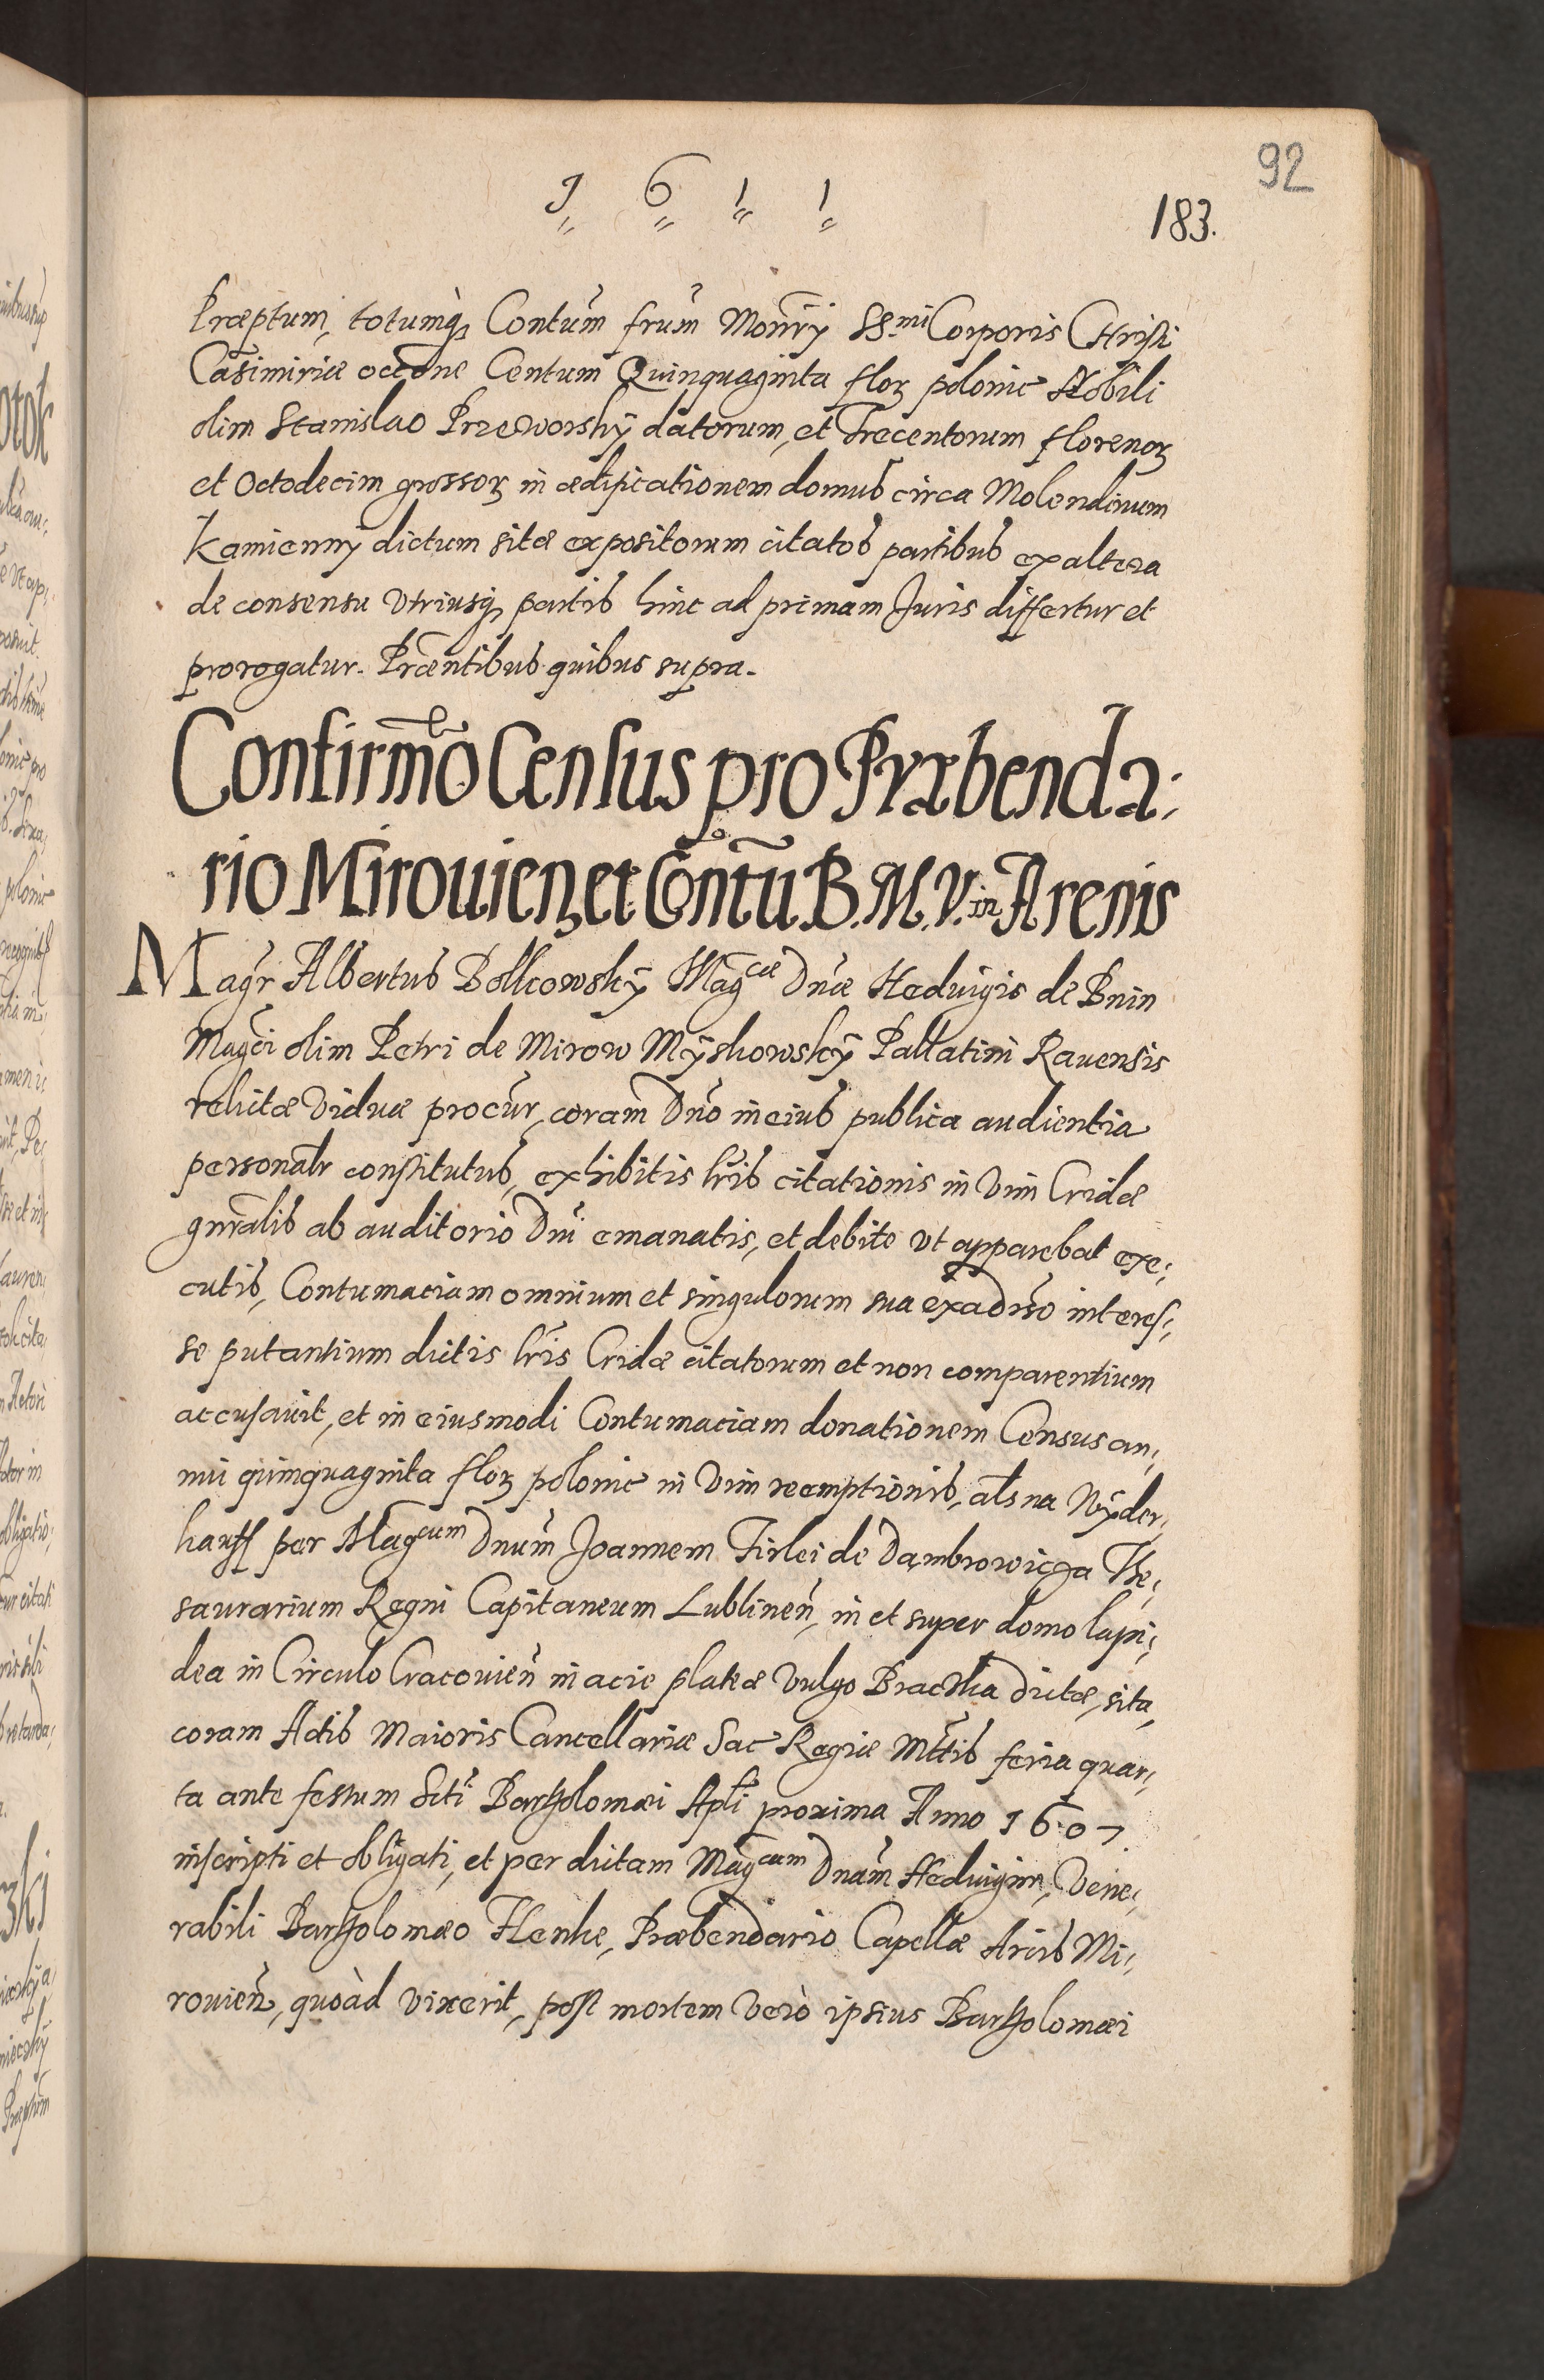 92
1 6 1 1
183.
Præptum, totumq₃ Contūm frum Monrÿ SS.mi Corporis Christi
Casimiriæ occōne Centum Quinquaginta floꝝ polonic Nobili
olim Stanislao Przeworsky datorum, et Trecentorum florenoꝝ
et Octodecim grossoꝝ in ædificationem domus circa Molendinum
Kamienny dictum sitæ expositorum citatos partibus ex altera
de consensu Vtriusq₃ partis hinc ad primam Juris differtur et
prorogatur. Præntibus quibus supra.
Confirmō Census pro Præbenda:
rio Mirouien̄ et Contū B. M. V. in Arenis
Magr Albertus Bolkowsky Magcæ Dnæ Heduigis de Bnin
Magci olim Petri de Mirow Myszkowsky Pallatini Rauensis
relictæ Viduæ procūr, coram Dno in eius publica audientia
personalr constitutus, exhibitis lris citationis in Vim Cridæ
gnralis ab auditorio Dni emanatis, et debite vt apparebat exe:
cutis, Contumaciam omnium et singulorum sua ex adūso interes:
se putantium dictis lris Cridæ citatorum et non comparentium
accusauit, et in eiusmodi Contumaciam donationem Census an:
nui quinquaginta floꝝ polonic in Vim reemptionis, als na Wÿder:
kauff per Magcum Dnum Joannem Firlei de Dambrowicza The:
saurarium Regni Capitaneum Lublinen̄, in et super domo lapi:
dea in Circulo Cracouien̄ in acie plateæ Vulgo Braczka dictæ, sita,
coram Actis Maioris Cancellariæ Sac Regiæ Mttis feria quar:
ta ante festum Scti Bartholomæi Apli proxima Anno 1607
inscripti et obligati, et per dictam Magcam Dnam Heduigim, Vene:
rabili Bartholomæo Henke, Præbendario Capellæ Arcis Mi:
rouien̄, quoàd vixerit, post mortem verò ipsius Bartholomæi